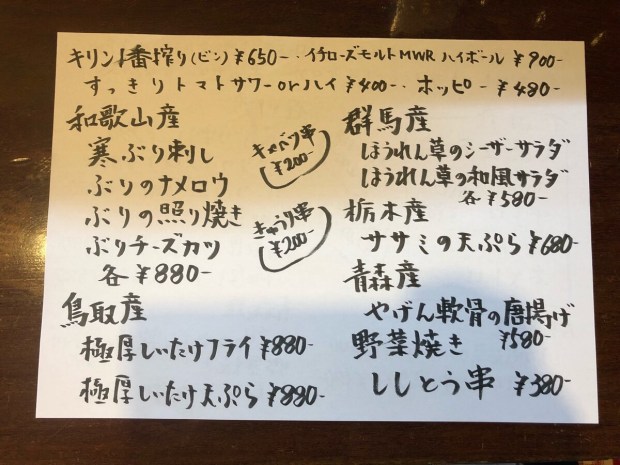 キリン1番搾り(ビン)¥650-・イチローズモルトMWR ハイボール ¥900-
すっきりトマトサワーorハイ ¥400- ホッピー ¥480-
和歌山産
寒ぶり刺し
ぶりのナメロウ
ぶりの照り焼き
ぶりチーズカツ
各 ¥880-
キャベツ串
¥200-
きゅうり串
¥200-
鳥取産
極厚しいたけフライ ¥880-
極厚しいたけ天ぷら ¥880-
群馬産
ほうれん草のシーザーサラダ
ほうれん草の和風サラダ
各 ¥580-
栃木産
ササミの天ぷら ¥680-
青森産
やげん軟骨の唐揚げ
¥580-
野菜焼き
ししとう串 ¥380-